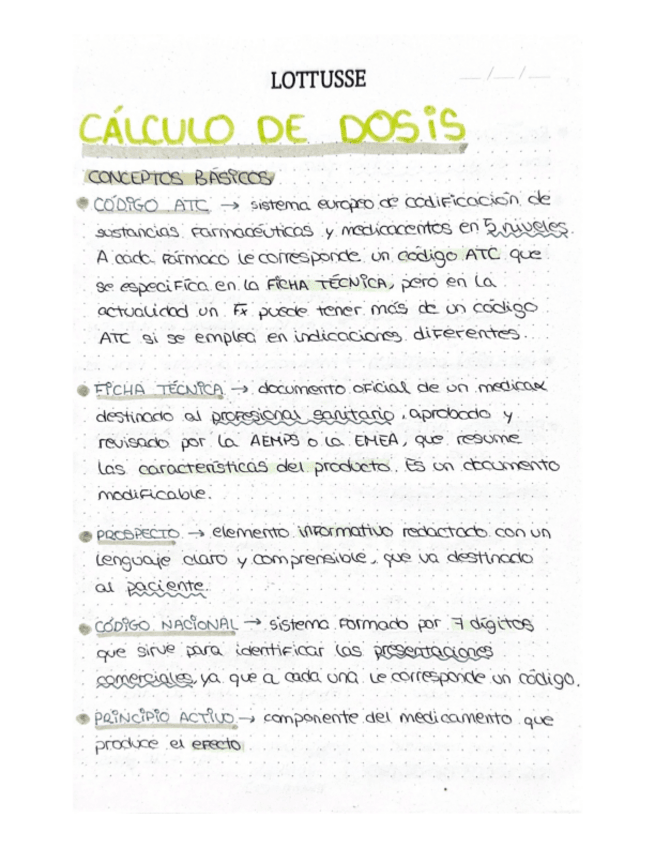 LOTTUSSE
__/__/__
CÁLCULO DE DOSIS
CONCEPTOS BÁSICOS
CÓDIGO ATC → sistema europeo de codificación de
sustancias farmacéuticas y medicacentos en 5 niveles.
A cada fármaco le corresponde un código ATC que
se especifica en la FICHA TÉCNICA, pero en la
actualidad un Fx puede tener más de un código
ATC si se emplea en indicaciones diferentes.
FICHA TÉCNICA → documento oficial de un
destinado al profesional sanitario, aprobado y
revisado por la AEMPS o la EMEA, que resume
las características del producto. Es un documento
modificable.
PROSPECTO → elemento informativo redactado con un
lenguaje claro y comprensible, que va destinado
al paciente.
CÓDIGO NACIONAL → sistema formado por 7 dígitos
que sirve para identificar las presentaciones
comerciales, ya que a cada una le corresponde un código.
PRINCIPIO ACTIVO → componente del medicamento que
produce el efecto